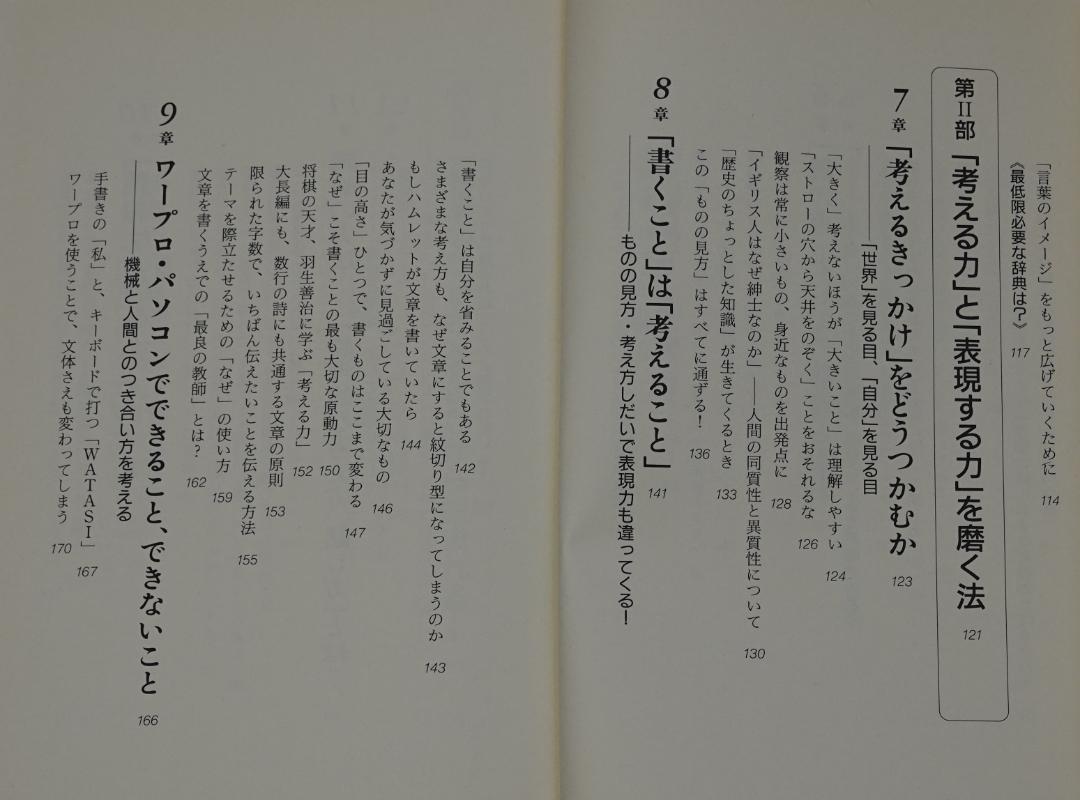 「言葉のイメージ」をもっと広げていくために 114
《最低限必要な辞典は?》 117
第Ⅱ部 「考える力」と「表現する力」を磨く法 121
7章 「考えるきっかけ」をどうつかむか 123
――「世界」を見る目、「自分」を見る目
「大きく」考えないほうが「大きいこと」は理解しやすい 124
「ストローの穴から天井をのぞく」ことをおそれるな 126
観察は常に小さいもの、身近なものを出発点に 128
「イギリス人はなぜ紳士なのか」――人間の同質性と異質性について 130
「歴史のちょっとした知識」が生きてくるとき 133
この「ものの見方」はすべてに通ずる! 136
8章 「書くこと」は「考えること」 141
――ものの見方・考え方しだいで表現力も違ってくる!
「書くこと」は自分を省みることでもある 142
さまざまな考え方も、なぜ文章にすると紋切り型になってしまうのか 143
もしハムレットが文章を書いていたら 144
あなたが気づかずに見過ごしている大切なもの 146
「目の高さ」ひとつで、書くものはここまで変わる 147
「なぜ」こそ書くことの最も大切な原動力 150
将棋の天才、羽生善治に学ぶ「考える力」 152
大長編にも、数行の詩にも共通する文章の原則 153
限られた字数で、いちばん伝えたいことを伝える方法 155
テーマを際立たせるための「なぜ」の使い方 159
文章を書くうえでの「最良の教師」とは? 162
9章 ワープロ・パソコンでできること、できないこと 166
――機械と人間とのつき合い方を考える
手書きの「私」と、キーボードで打つ「WATASI」 167
ワープロを使うことで、文体さえも変わってしまう 170